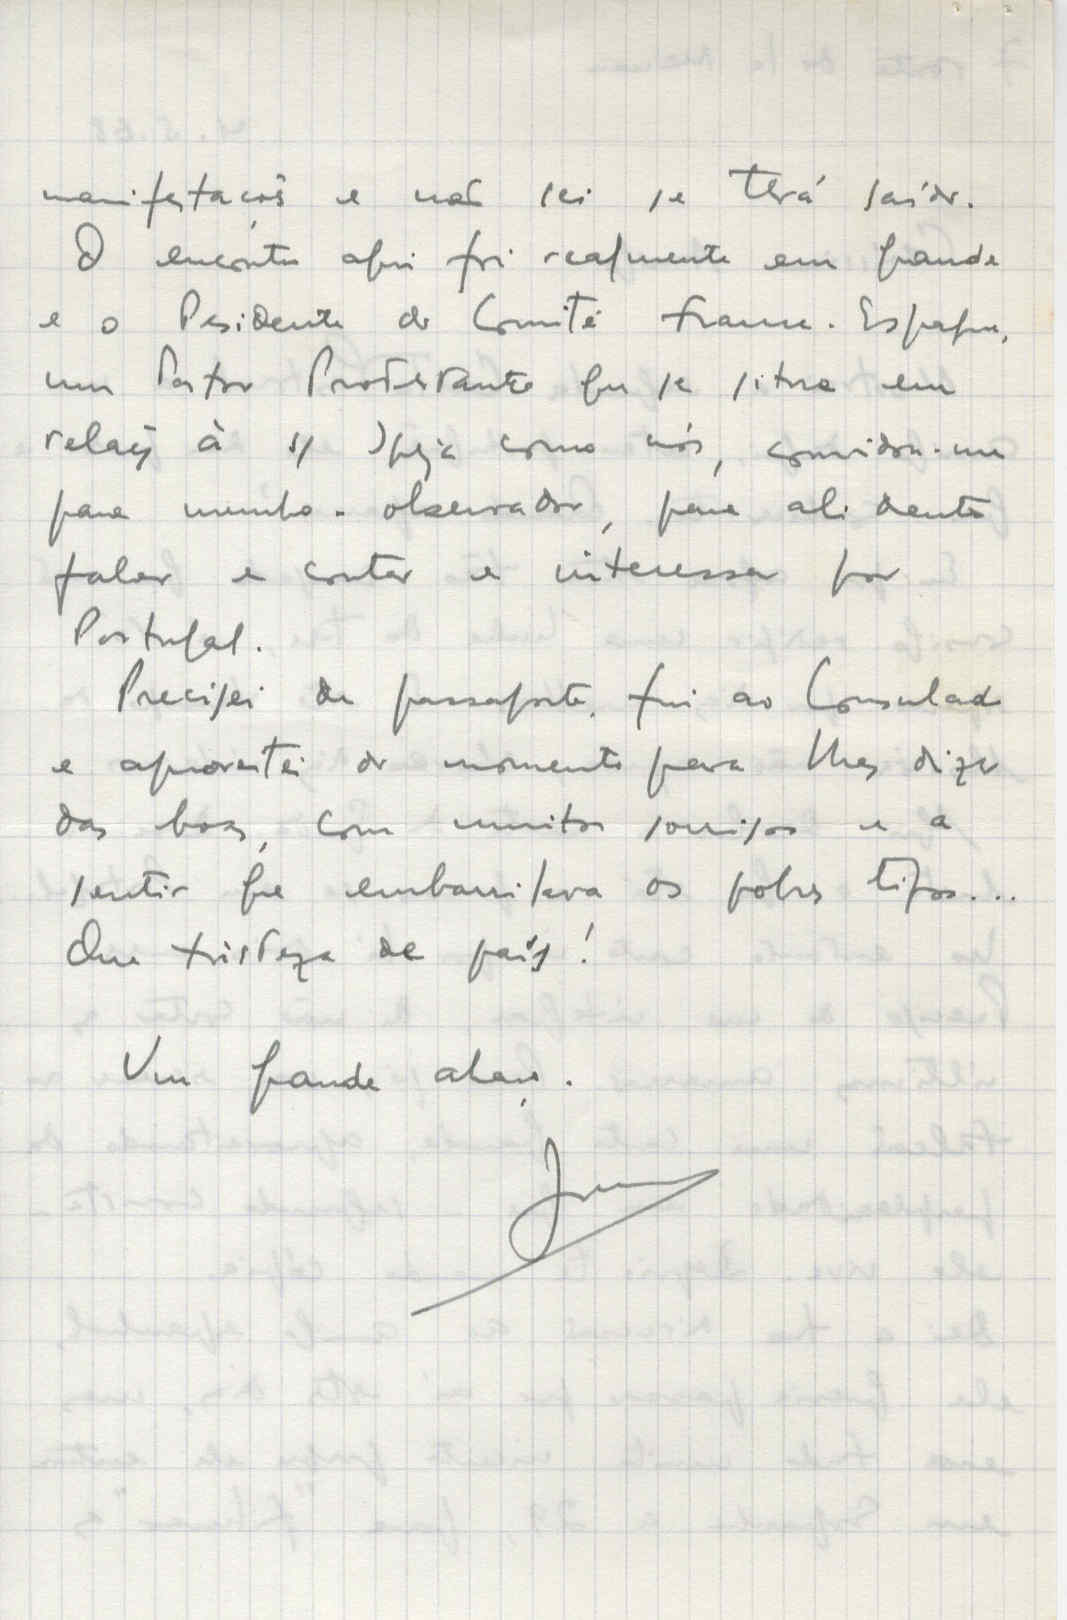 manifestações e não sei se terá saído.
O encontro aqui foi realmente em grande
e o Presidente do Comité France-Espagne,
um Pastor Protestante que se situa em
relação à s/ Igreja como nós, convidou-me
para membro-observador, para ali dentro
falar e contar e interessar por
Portugal.
Precisei de passaporte, fui ao Consulado
e aproveitei do momento para lhes dizer
das boas, com muitos sorrisos e a
sentir que embarrilava os pobres tipos...
Que tristeza de país!
Um grande abraço.